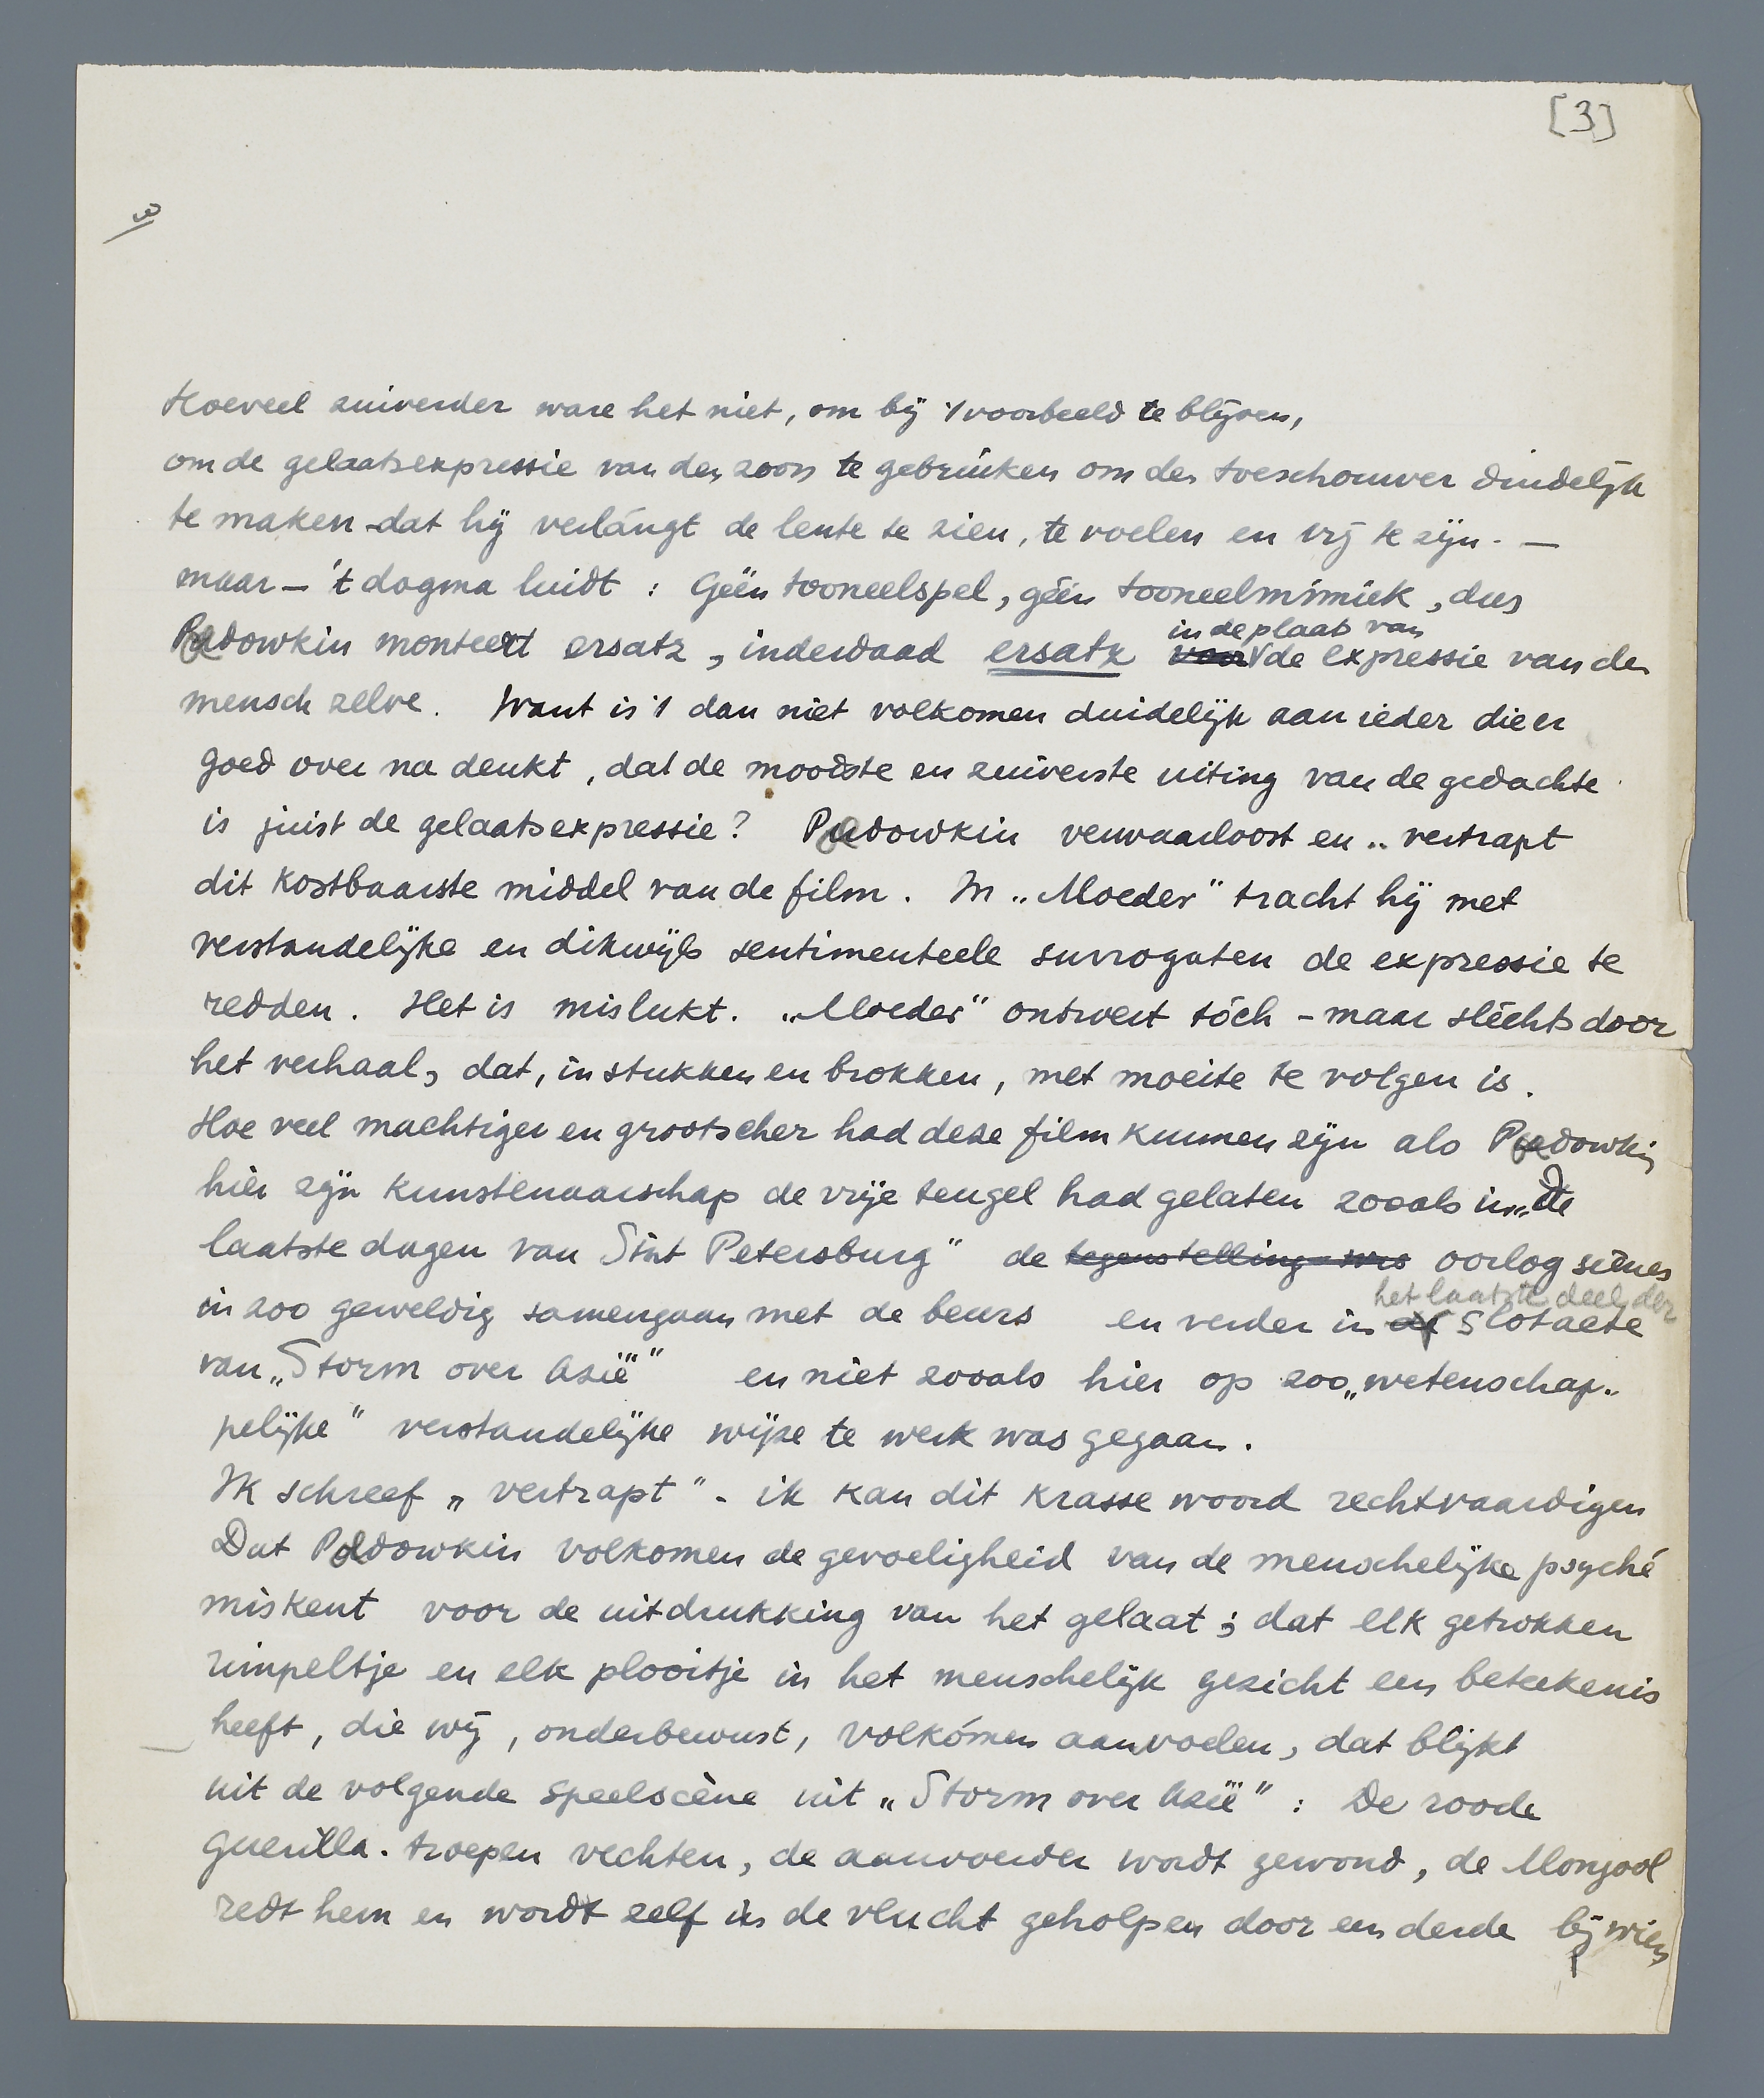 [3]
3
Hoeveel zuiverder ware het niet, om bij 't voorbeeld te blijven,
om de gelaatsexpressie van den zoon te gebruiken om den toeschouwer duidelijk
te maken dat hij verlángt de lente te zien, te voelen en vrij te zijn. —
maar – 't dogma luidt : Géén tooneelspel, géén tooneelmimiek, dus
in de plaats van
Pudowkin monteert ersatz, inderdaad ersatz voor de expressie van den
mensch zelve. Want is 't dan niet volkomen duidelijk aan ieder die er
goed over na denkt, dat de mooiste en zuiverste uiting van de gedachte
is juist de gelaatsexpressie? Pudowkin verwaarloost en .. vertrapt
dit kostbaarste middel van de film. In „Moeder" tracht hij met
verstandelijke en dikwijls sentimenteele surrogaten de expressie te
redden. Het is mislukt. „Moeder" ontroert tóch – maar slechts door
het verhaal, dat, in stukken en brokken, met moeite te volgen is.
Hoe veel machtiger en grootscher had deze film kunnen zijn als Pudowkin
hier zijn kunstenaarschap de vrije teugel had gelaten zooals in „De
laatste dagen van Sint Petersburg" de tegenstelling oorlog scènes
het laatste deel der
in zoo geweldig samengaan met de beurs en verder in de Slotacte
van „Storm over Azië" en niet zooals hier op zoo „wetenschap-
pelijke" verstandelijke wijze te werk was gegaan.
Ik schreef „vertrapt" - ik kan dit krasse woord rechtvaardigen
Dat Pudowkin volkomen de gevoeligheid van de menschelijke psyché
miskent voor de uitdrukking van het gelaat ; dat elk getrokken
rimpeltje en elk plooitje in het menschelijk gezicht een beteekenis
heeft, die wij, onderbewust, volkómen aanvoelen, dat blijkt
uit de volgende speelscène uit „Storm over Azië" : De roode
guerilla-troepen vechten, de aanvoerder wordt gewond, de Mongool
redt hem en wordt zelf in de vlucht geholpen door een derde bij wien